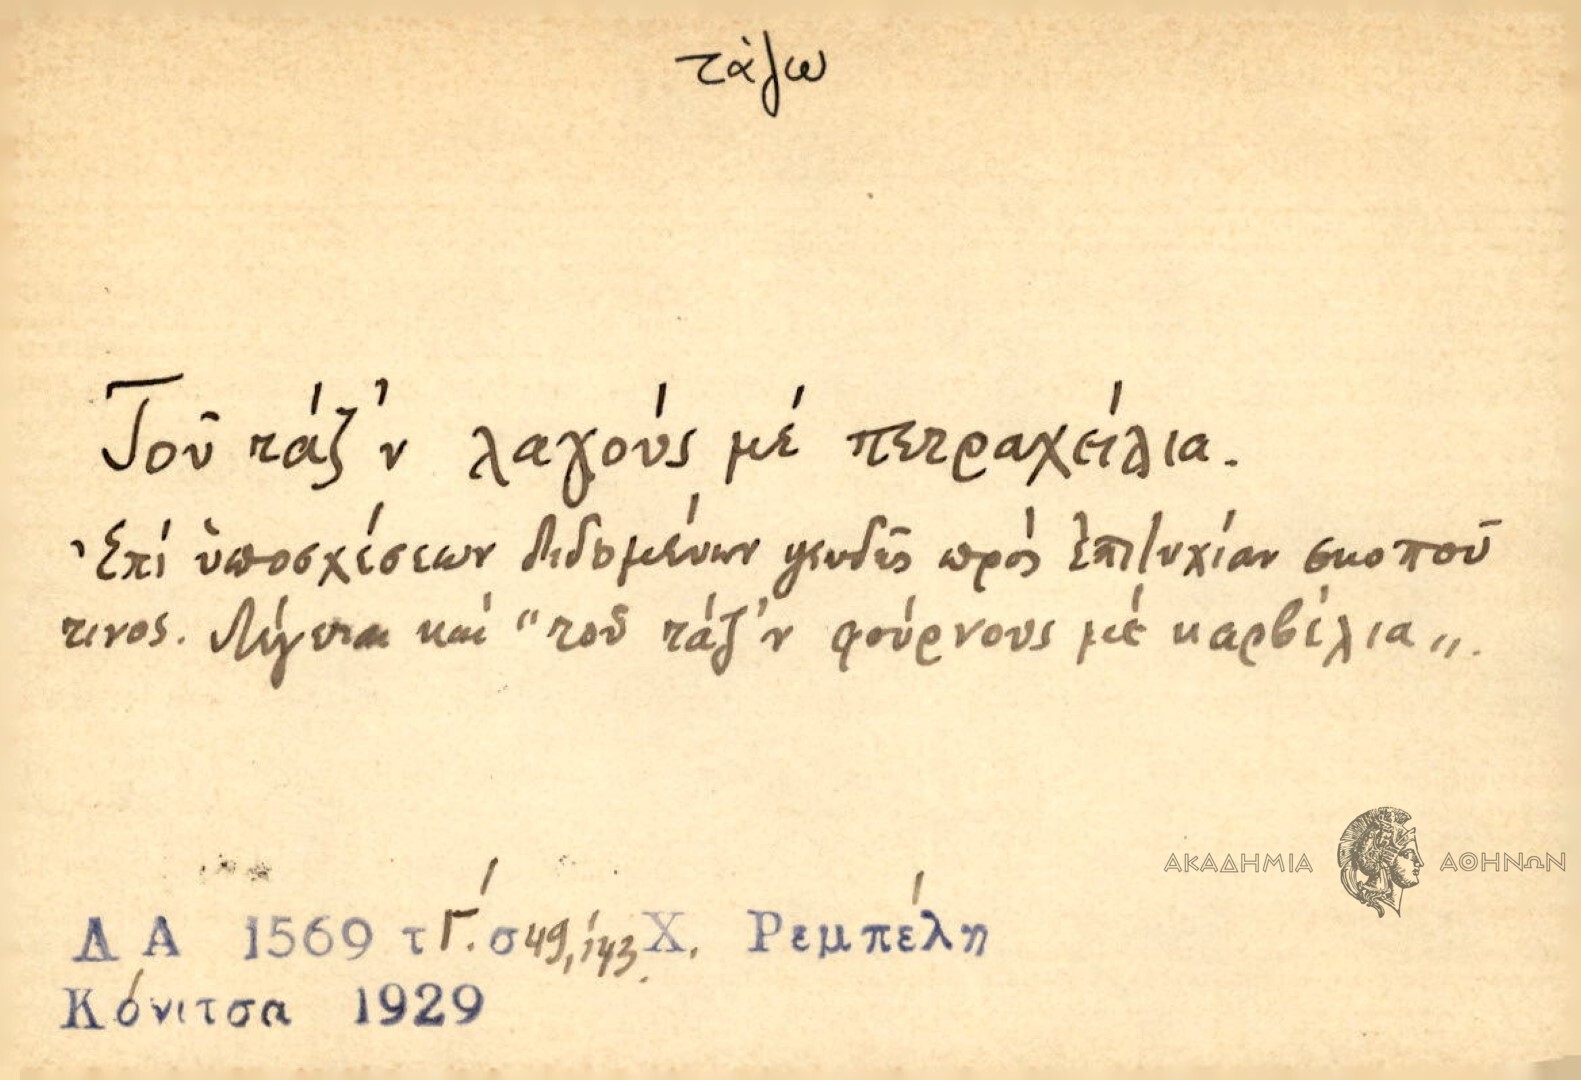 τάζω
Τοῦ τάζ'ν λαγούς μέ πετραχείλια.
Ἐπί ὑποσχέσεων διδομένων ψευδῶς πρός ἐπιτυχίαν σκοποῦ
τινος. Λέγεται καί "τοῦ τάζ'ν φούρνους μέ καρβέλια".
ΑΚΑΔΗΜΙΑ ΑΘΗΝΩΝ
Λ Α 1569 τ Γ́. σ 49, 143. Χ. Ρεμπέλη
Κόνιτσα 1929